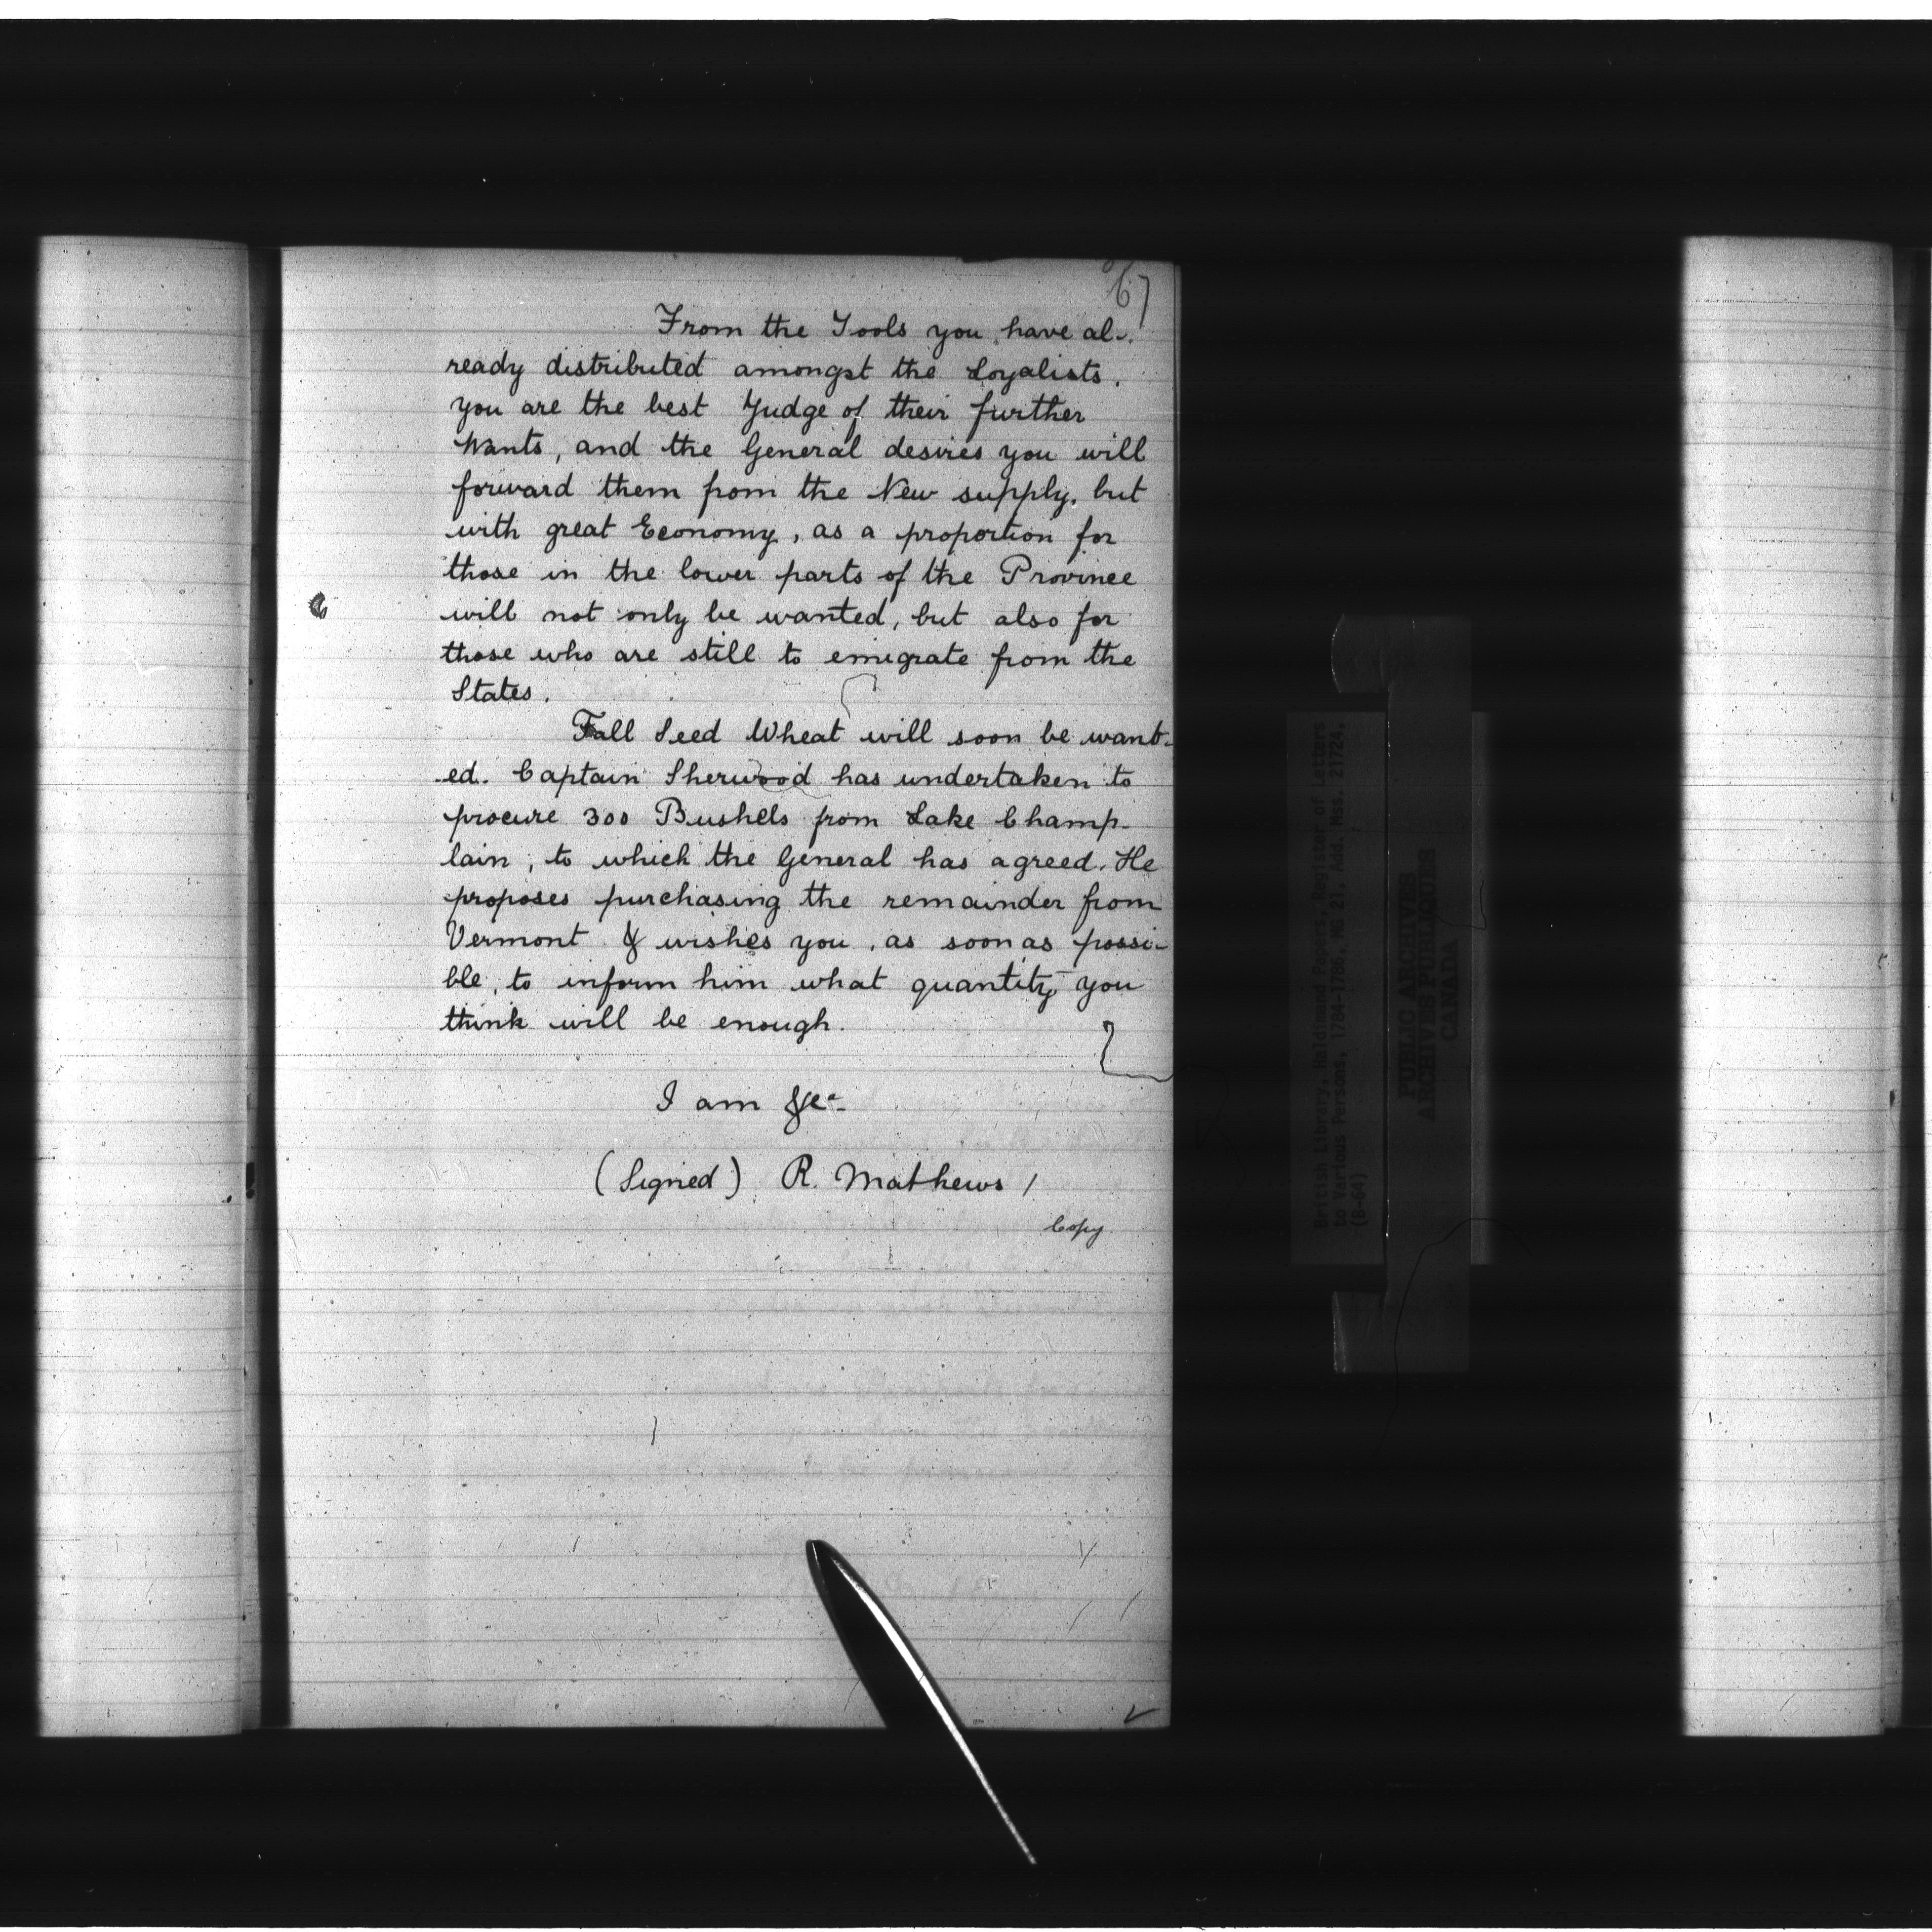 67
From the Tools you have al-
ready distributed amongst the Loyalists.
you are the best Judge of their further
Wants, and the General desires you will
forward them from the New supply, but
with great Economy, as a proportion for
those in the lower parts of the Province
will not only be wanted, but also for
those who are still to emigrate from the
States.
Fall Seed Wheat will soon be want-
ed. Captain Sherwood has undertaken to
procure 300 Bushels from Lake Champ-
lain, to which the General has agreed. He
proposes purchasing the remainder from
Vermont & wishes you, as soon as possi-
ble, to inform him what quantity you
think will be enough.
I am &c-
(Signed) R. Mathews /
Copy.
British Library, Haldimand Papers, Register of Letters
to Various Persons, 1784-1786, MG 21, Add. Mss. 21724,
(B-64)
PUBLIC ARCHIVES
ARCHIVES PUBLIQUES
CANADA